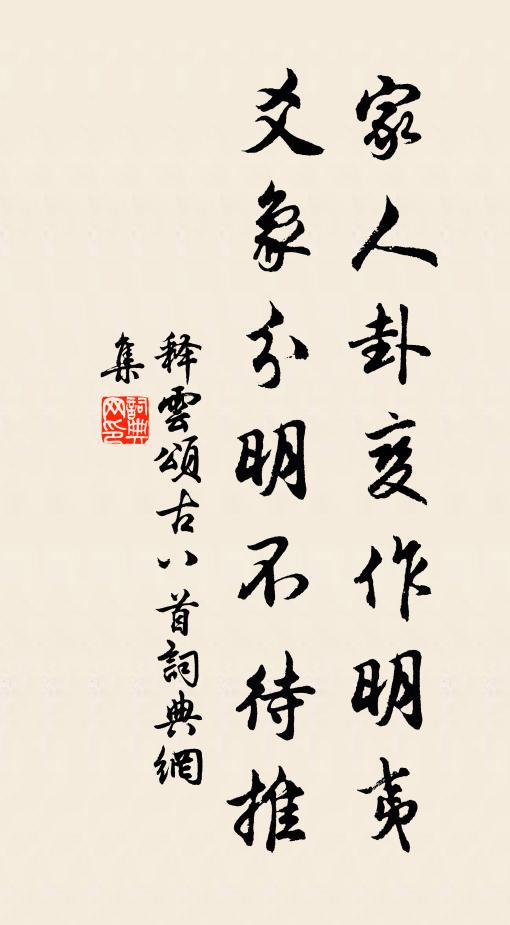 家人卦变作明夷
爻象分明不待推
释雲頌古八首詞典網
集
詞典网印